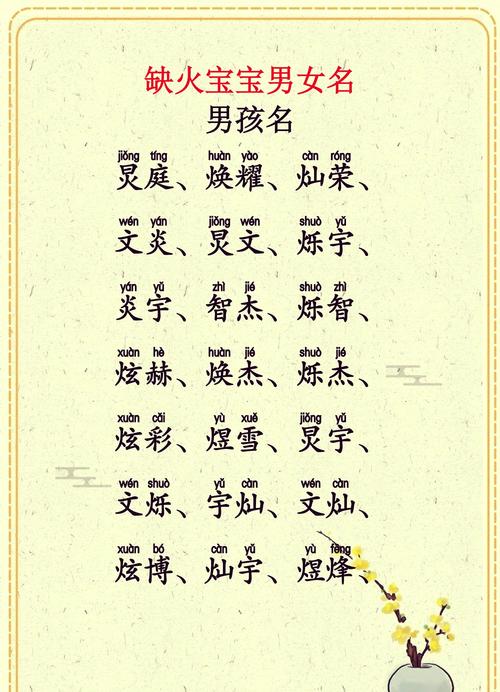 缺火宝宝男女名
男孩名
jiǒng tíng huàn yào càn róng
炅庭、焕耀、灿荣、
wén yán jiǒng wén shuò yǔ
文炎、炅文、烁宇、
yán yǔ zhì jié shuò zhì
炎宇、智杰、烁智、
xuàn hè huàn jié shuò jié
炫赫、焕杰、烁杰、
xuàn cǎi yù xuě jiǒng yǔ
炫彩、煜雪、炅宇、
wén shuò yǔ càn wén càn
文烁、宇灿、文灿、
xuàn bó càn yǔ yù fēng
炫博、灿宇、煜烽、